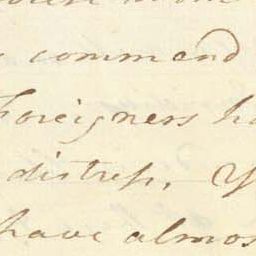 command
Foreigners h
distreſs, Y
have almos